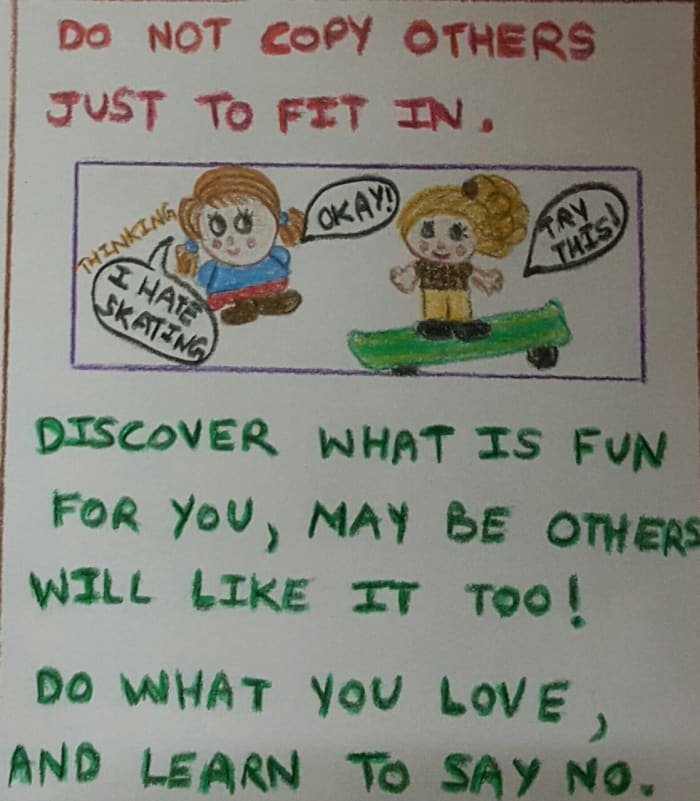 DO NOT COPY OTHERS
JUST TO FIT IN.
THINKING
I HATE
SKATING
OKAY!
TRY
THIS!
DISCOVER WHAT IS FUN
FOR YOU, MAY BE OTHERS
WILL LIKE IT TOO!
DO WHAT YOU LOVE,
AND LEARN TO SAY NO.